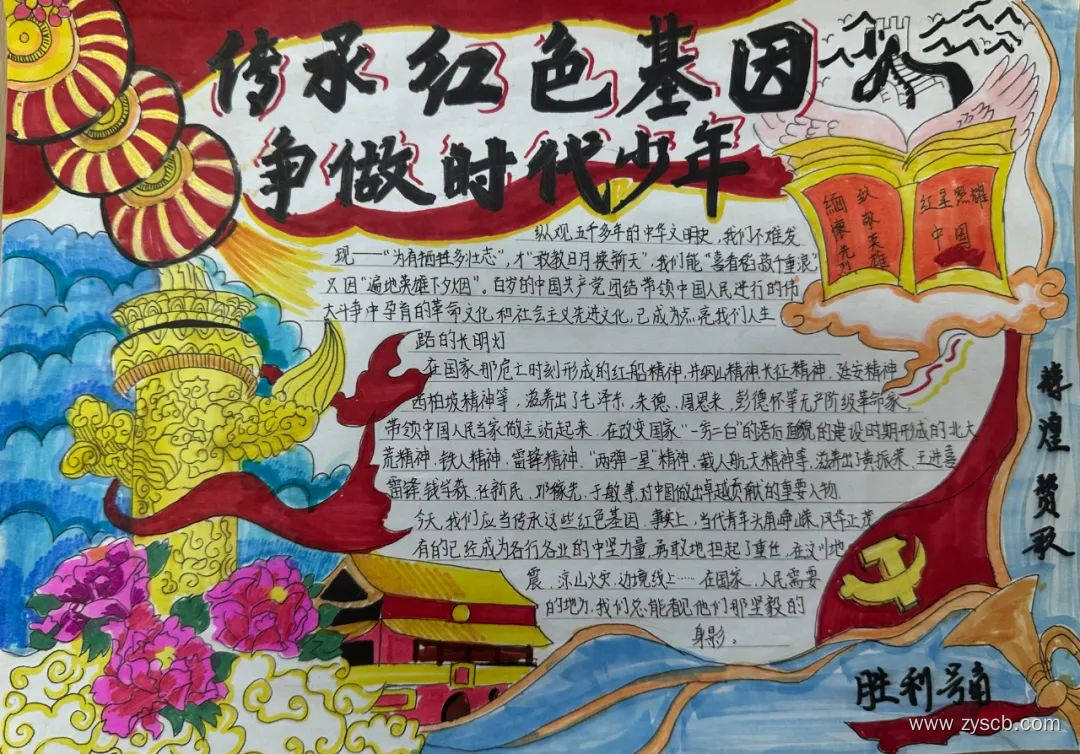 传承红色基因
争做时代少年
缅怀先烈
致敬英雄
红星照耀
中国
纵观五千多年的中华文明史，我们不难发
现——“为有牺牲多壮志”，才“敢教日月换新天”，我们能“喜看稻菽千重浪”
又因“遍地英雄下夕烟”。百岁的中国共产党团结带领中国人民进行的伟
大斗争中孕育的革命文化和社会主义先进文化，已成为点亮我们人生
路的长明灯
在国家那危亡时刻形成的红船精神，井冈山精神长征精神，延安精神
西柏坡精神等，滋养出了毛泽东，朱德，周恩来，彭德怀等无产阶级革命家，
带领中国人民当家做主站起来，在改变国家“一穷二白”的落后面貌的建设时期形成的北大
荒精神，铁人精神，雷锋精神，“两弹一星”精神，载人航天精神等，滋养出了黄振荣，王进喜
雷锋钱学森，任新民，邓稼先，于敏等对中国做出卓越贡献的重要人物
今天，我们应当传承这些红色基因，事实上，当代青年头角峥嵘，风华正茂
有的已经成为各行各业的中坚力量，勇敢地担起了重任，在汶川地
震，凉山火灾，边境线上……在国家，人民需要
的地方，我们总能看见他们那坚毅的
身影。
胜利号角
www.zyscb.com